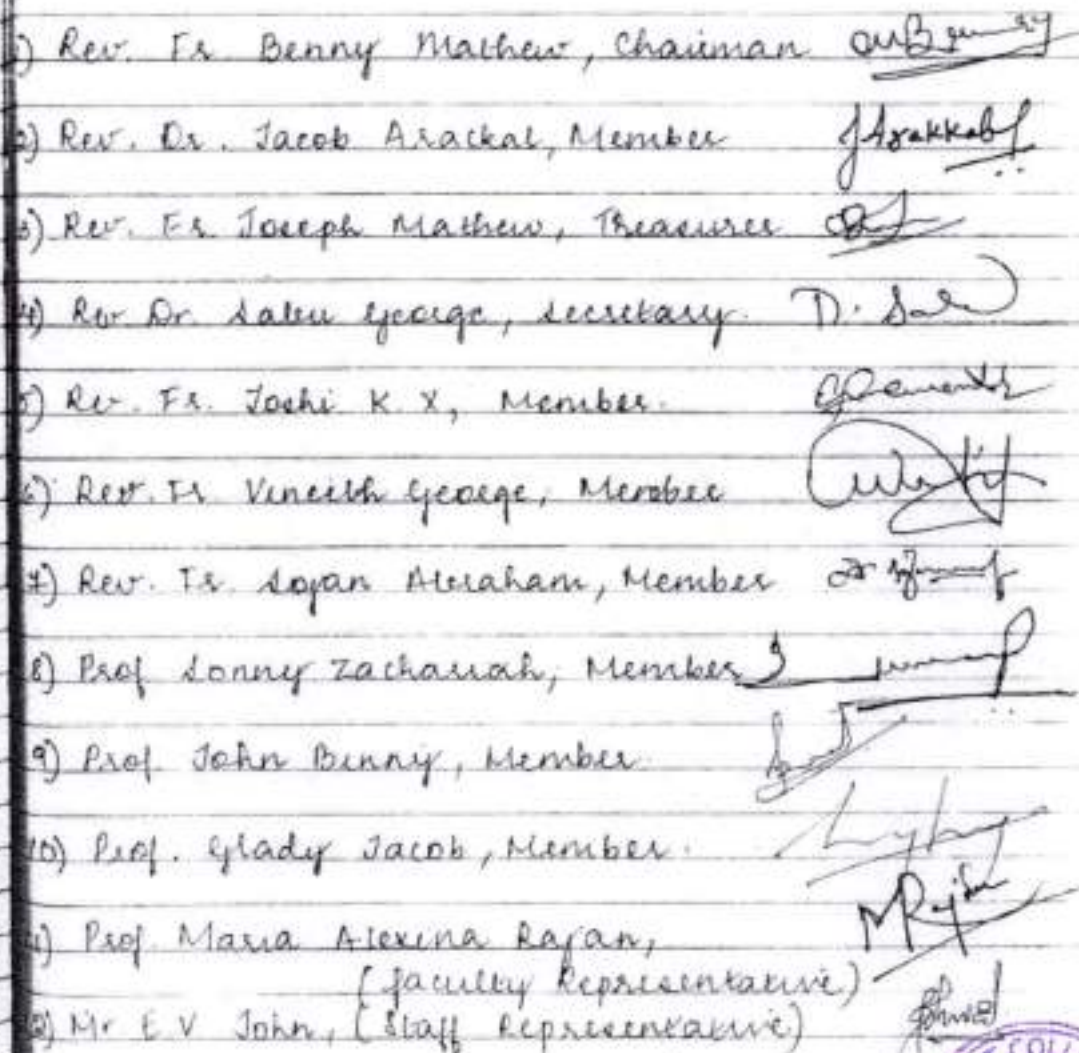 1) Rev. Fr. Benny Mathew, Chairman
2) Rev. Dr. Jacob Arackal, Member J Arakkal
3) Rev. Fr. Joseph Mathew, Treasurer
4) Rev Dr. Saleu George, Secretary.
5) Rev. Fr. Joshi K. X, Member.
6) Rev. Fr. George, Member
7) Rev. Fr. Sojan Abraham, Member
8) Prof Sonny Zachariah, Member
9) Prof. John Binny, Member.
10) Prof. Glady Jacob, Member.
11) Prof. Maria Alexina Rajan, MRajan
(faculty Representative)
12) Mr E.V John, (Staff Representative)
COLL